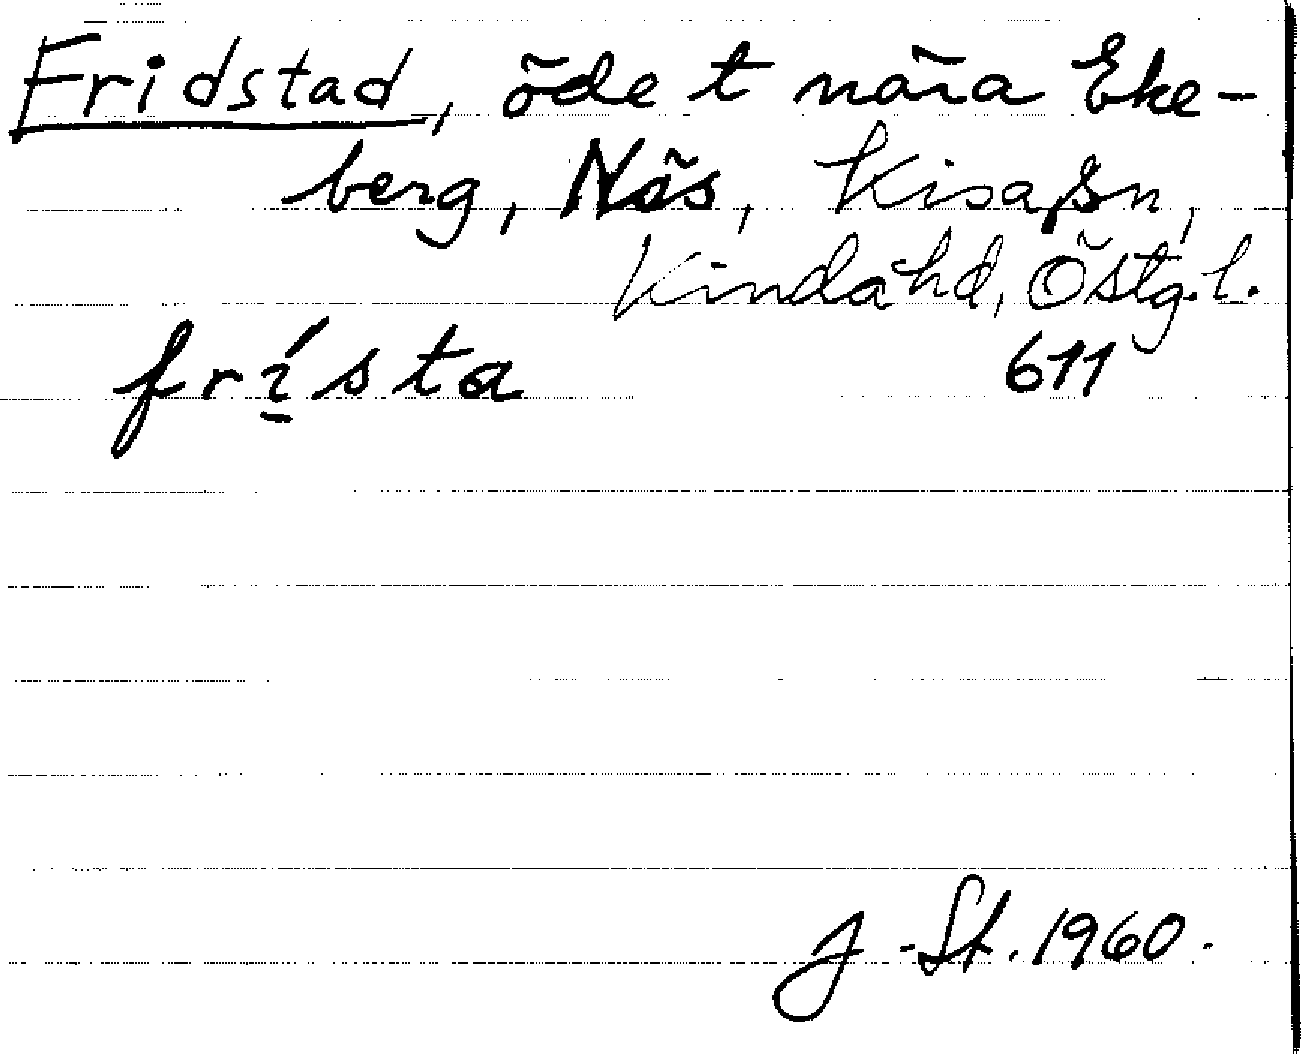 Fridstad, öde t nära Eke-
berg, Näs, Kisa sn,
Kinda hd, Östg.l.
frí̱sta 611
J-St. 1960.